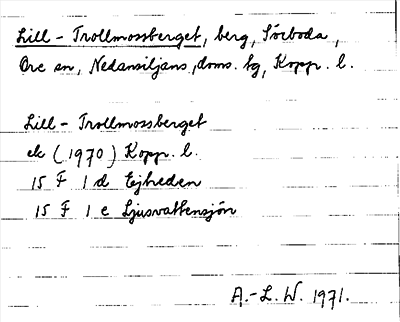 Lill-Trollmossberget, berg, Sörboda,
Ore sn, Nedansiljans doms. tg, Kopp. l.
Lill-Trollmossberget
ek (1970) Kopp. l.
15 F 1 d Ejheden
15 F 1 e Ljusvattensjön
A.-L. W. 1971.